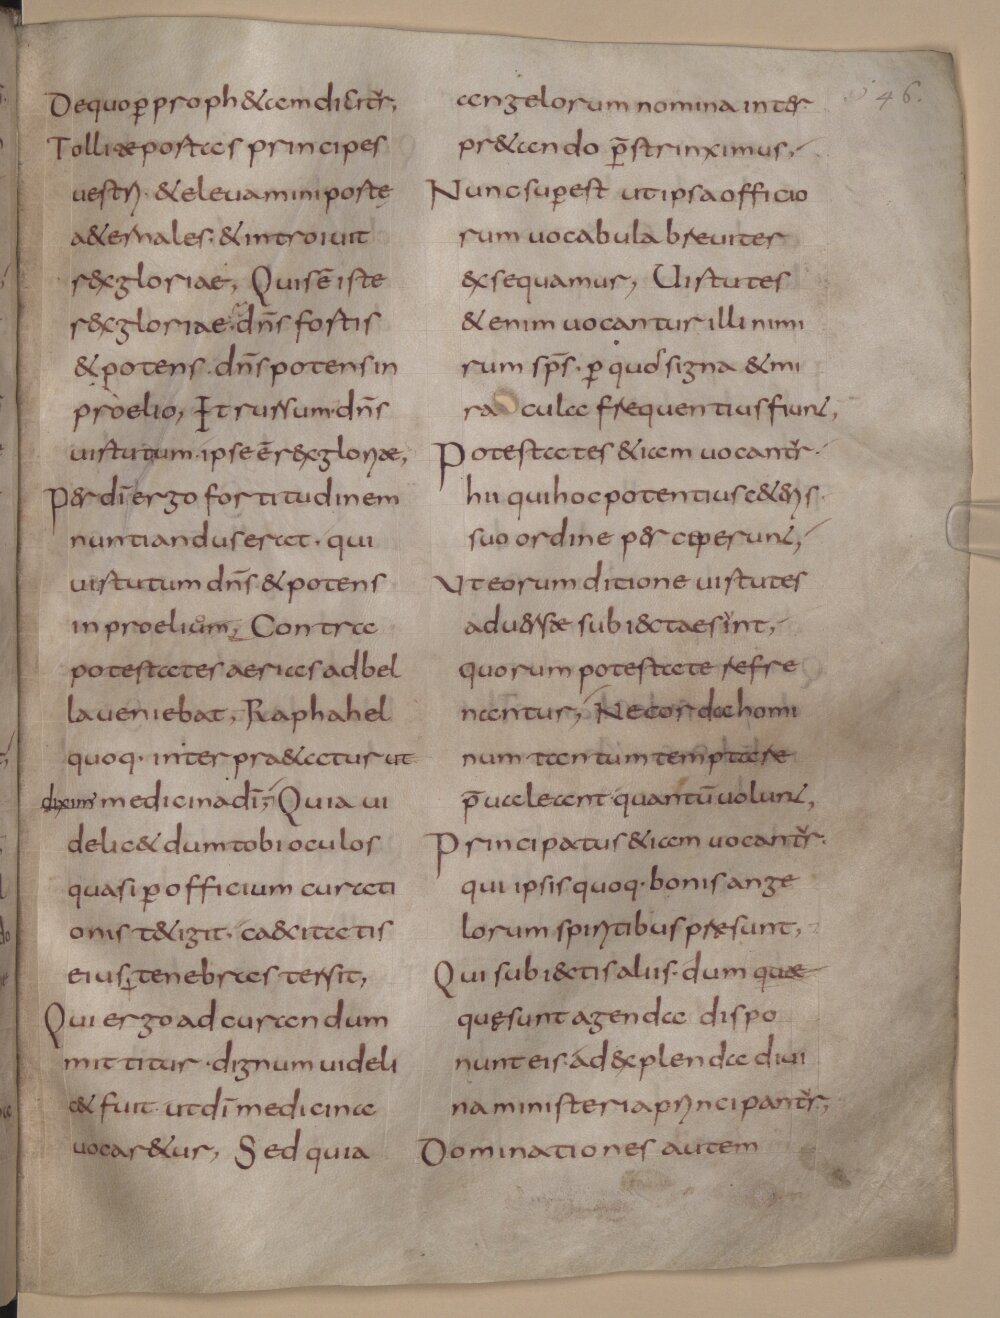 De quo ꝑ proph&am dicit̄r,
Tollite portas principes
uestri. & eleuamini porte
a&ernales. & introiuit
rex gloriae, Quis ē iste
rex gloriae. dn̄s fortis
& potens. dn̄s potens in
proelio, It rursum. dn̄s
uirtutum. ipse ēr rex gloriae,
Per dī ergo fortitudinem
nuntiandus erat. qui
uirtutum dn̄s & potens
in proelium, Contra
potestates aerias ad bel
la ueniebat, Raphahel
quoq· inter pra&atur ut
dixim' medicina dī, Quia ui
delic& dum tobi oculos
quasi ꝑ officium curati
onis t&igit. caecitatis
eius tenebras tersit,
Qui ergo ad curandum
mittitur. dignum uideli
c& fuit. ut dī medicina
uocar&ur, Sed quia
angelorum nomina inter
pr&ando p̄strinximus,
Nunc superest ut ipsa officio
rum uocabula breuiter
exsequamur, Uirtutes
&enim uocantur illi nimi
rum sp̄s. ꝑ quos signa & mi
racula frequentius fiunt,
Potestates &iam uocant̄r.
hii qui hoc potentius c&eris.
suo ordine perceperunt,
Ut eorum dicione uirtutes
aduersae subiectae sint,
quorum potestate refre
nantur, Ne corda homi
num tantum temptare
p̄ualeant quantū uolunt,
Principatus &iam uocant̄r.
qui ipsis quoq· bonis ange
lorum spiritibus presunt,
Qui subiectis aliis. dum quae
quęsunt agenda dispo
nunt eis. ad explenda diui
na ministeria principant̄r,
Dominationes autem
46.